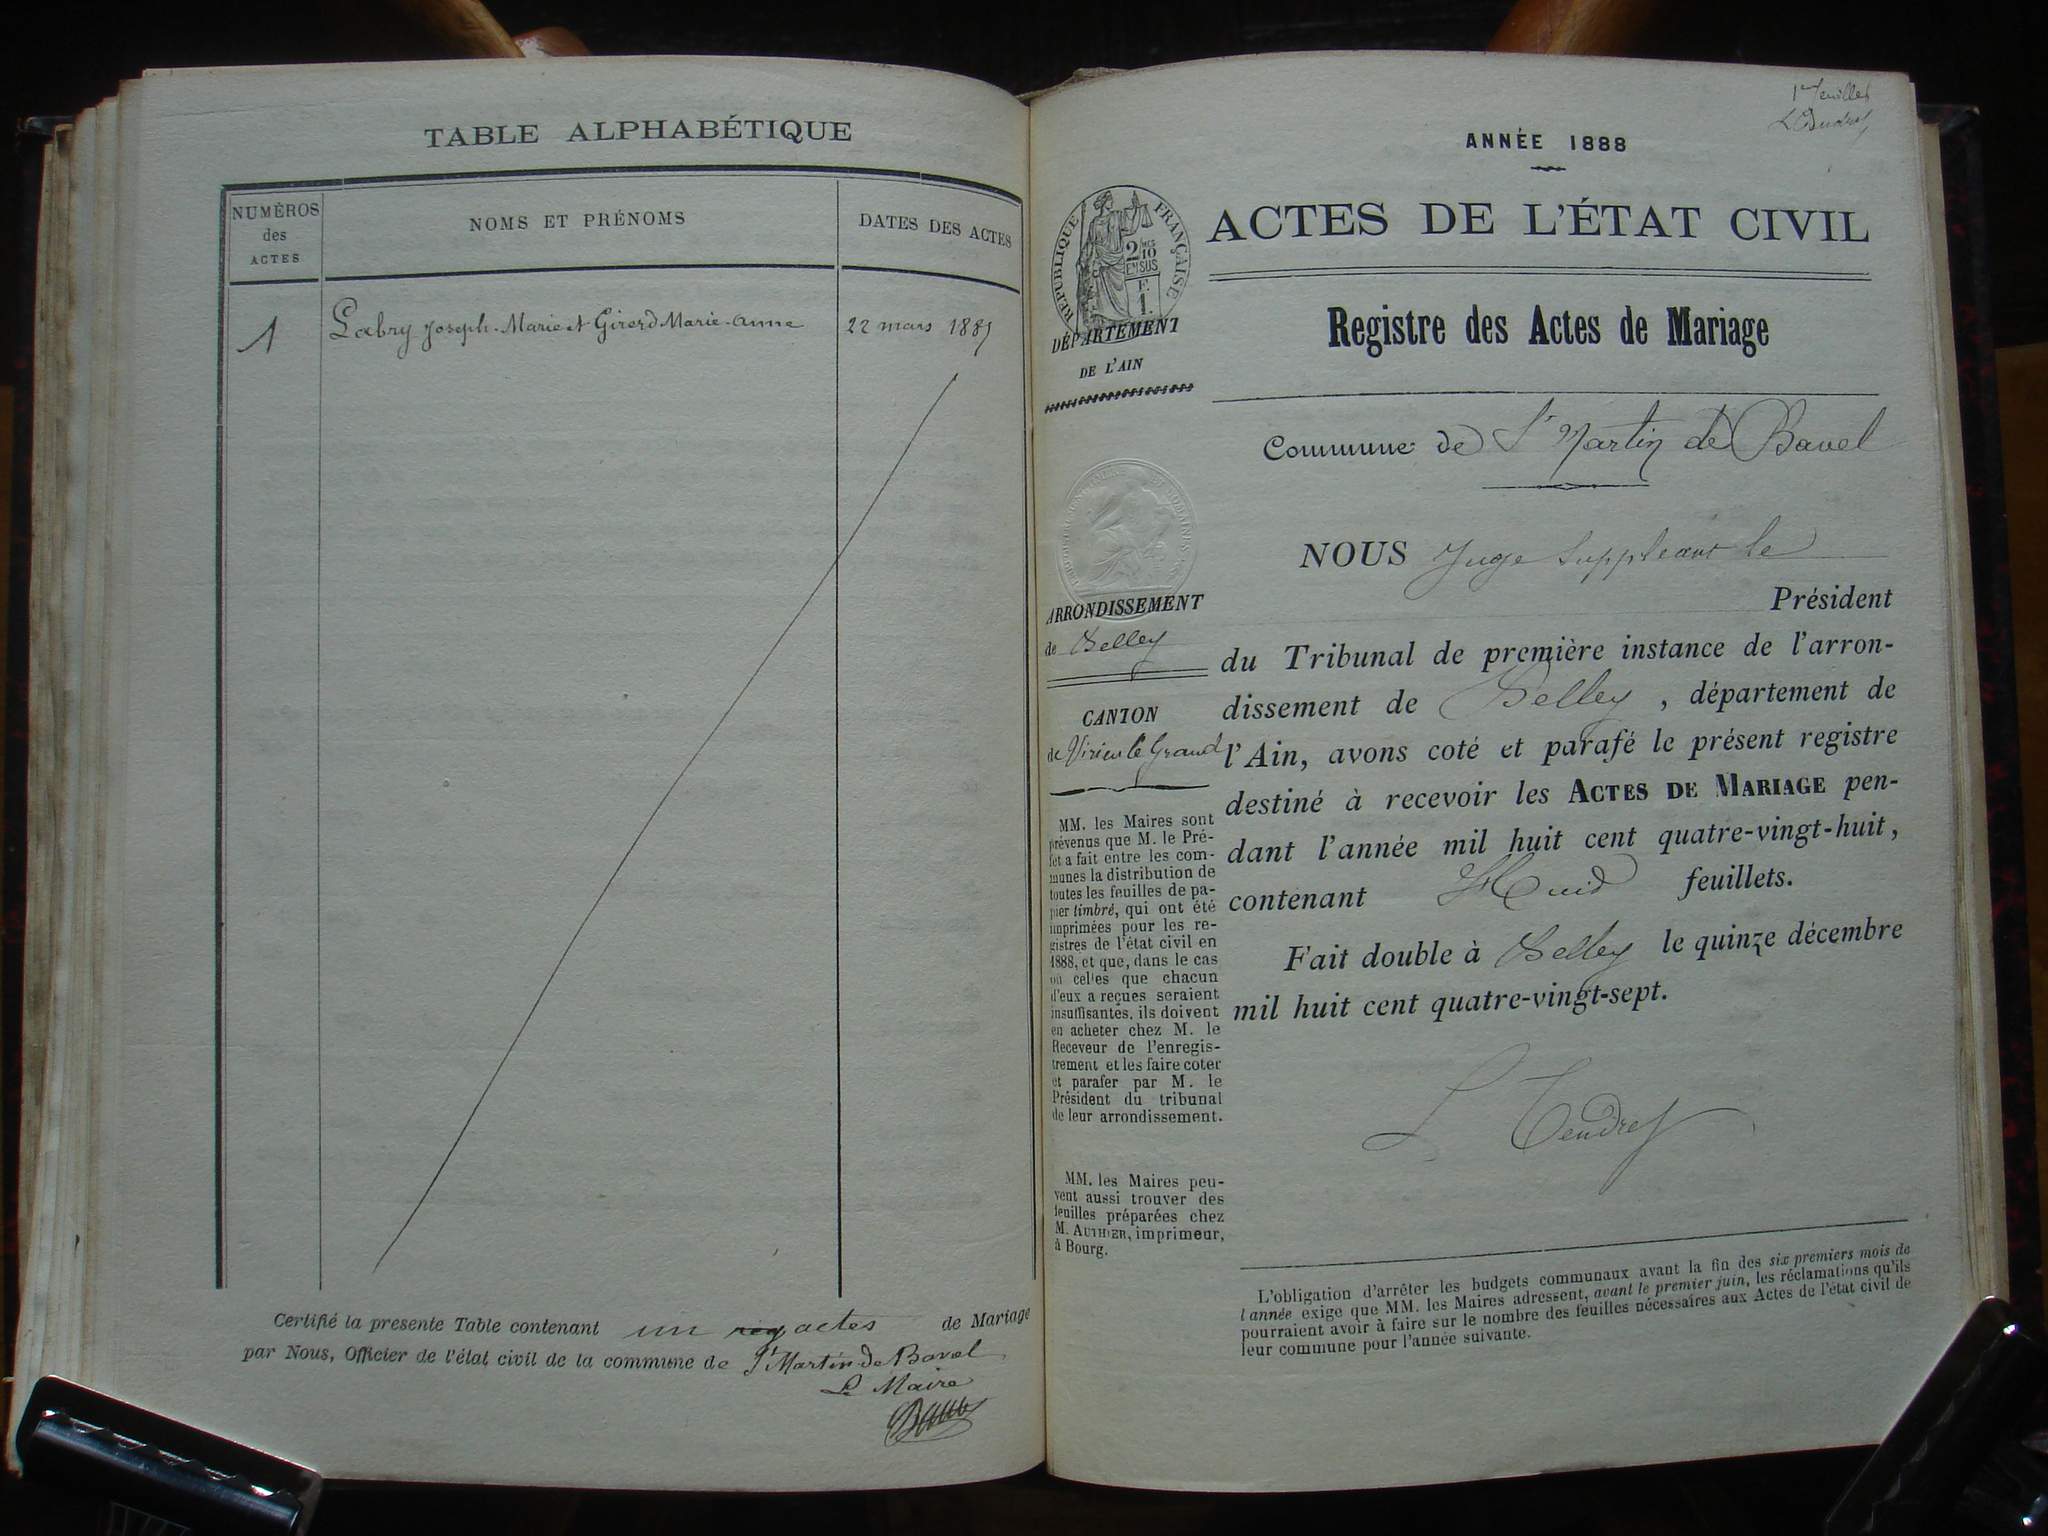 TABLE ALPHABÉTIQUE
NUMÉROS
des
ACTES
NOMS ET PRÉNOMS
DATES DES ACTES
1
Labry Joseph-Marie et Girerd Marie-Anne
22 mars 1887
Certifié la presente Table contenant un actes de Mariage
par Nous, Officier de l'état civil de la commune de St Martin de Bavel
Le Maire
1er feuillet
ANNÉE 1888
RÉPUBLIQUE FRANÇAISE
2/10 EN SUS
F.
1.
DÉPARTEMENT
DE L'AIN
ACTES DE L'ÉTAT CIVIL
Registre des Actes de Mariage
Commune de St Martin de Bavel
ARRONDISSEMENT
de Belley
CANTON
de Virieu le Grand
MM. les Maires sont
prévenus que M. le Pré-
fet a fait entre les com-
munes la distribution de
toutes les feuilles de pa-
pier timbré, qui ont été
imprimées pour les re-
gistres de l'état civil en
1888, et que, dans le cas
où celles que chacun
d'eux a reçues seraient
insuffisantes, ils doivent
en acheter chez M. le
Receveur de l'enregis-
trement et les faire coter
et parafer par M. le
Président du tribunal
de leur arrondissement.
MM. les Maires peu-
vent aussi trouver des
feuilles préparées chez
M. AUTHIER, imprimeur,
à Bourg.
NOUS Juge Suppléant le
Président
du Tribunal de première instance de l'arron-
dissement de Belley, département de
l'Ain, avons coté et parafé le présent registre
destiné à recevoir les ACTES DE MARIAGE pen-
dant l'année mil huit cent quatre-vingt-huit,
contenant Huit feuillets.
Fait double à Belley le quinze décembre
mil huit cent quatre-vingt-sept.
L'obligation d'arrêter les budgets communaux avant la fin des six premiers mois de
l'année exige que MM. les Maires adressent, avant le premier juin, les réclamations qu'ils
pourraient avoir à faire sur le nombre des feuilles nécessaires aux Actes de l'état civil de
leur commune pour l'année suivante.